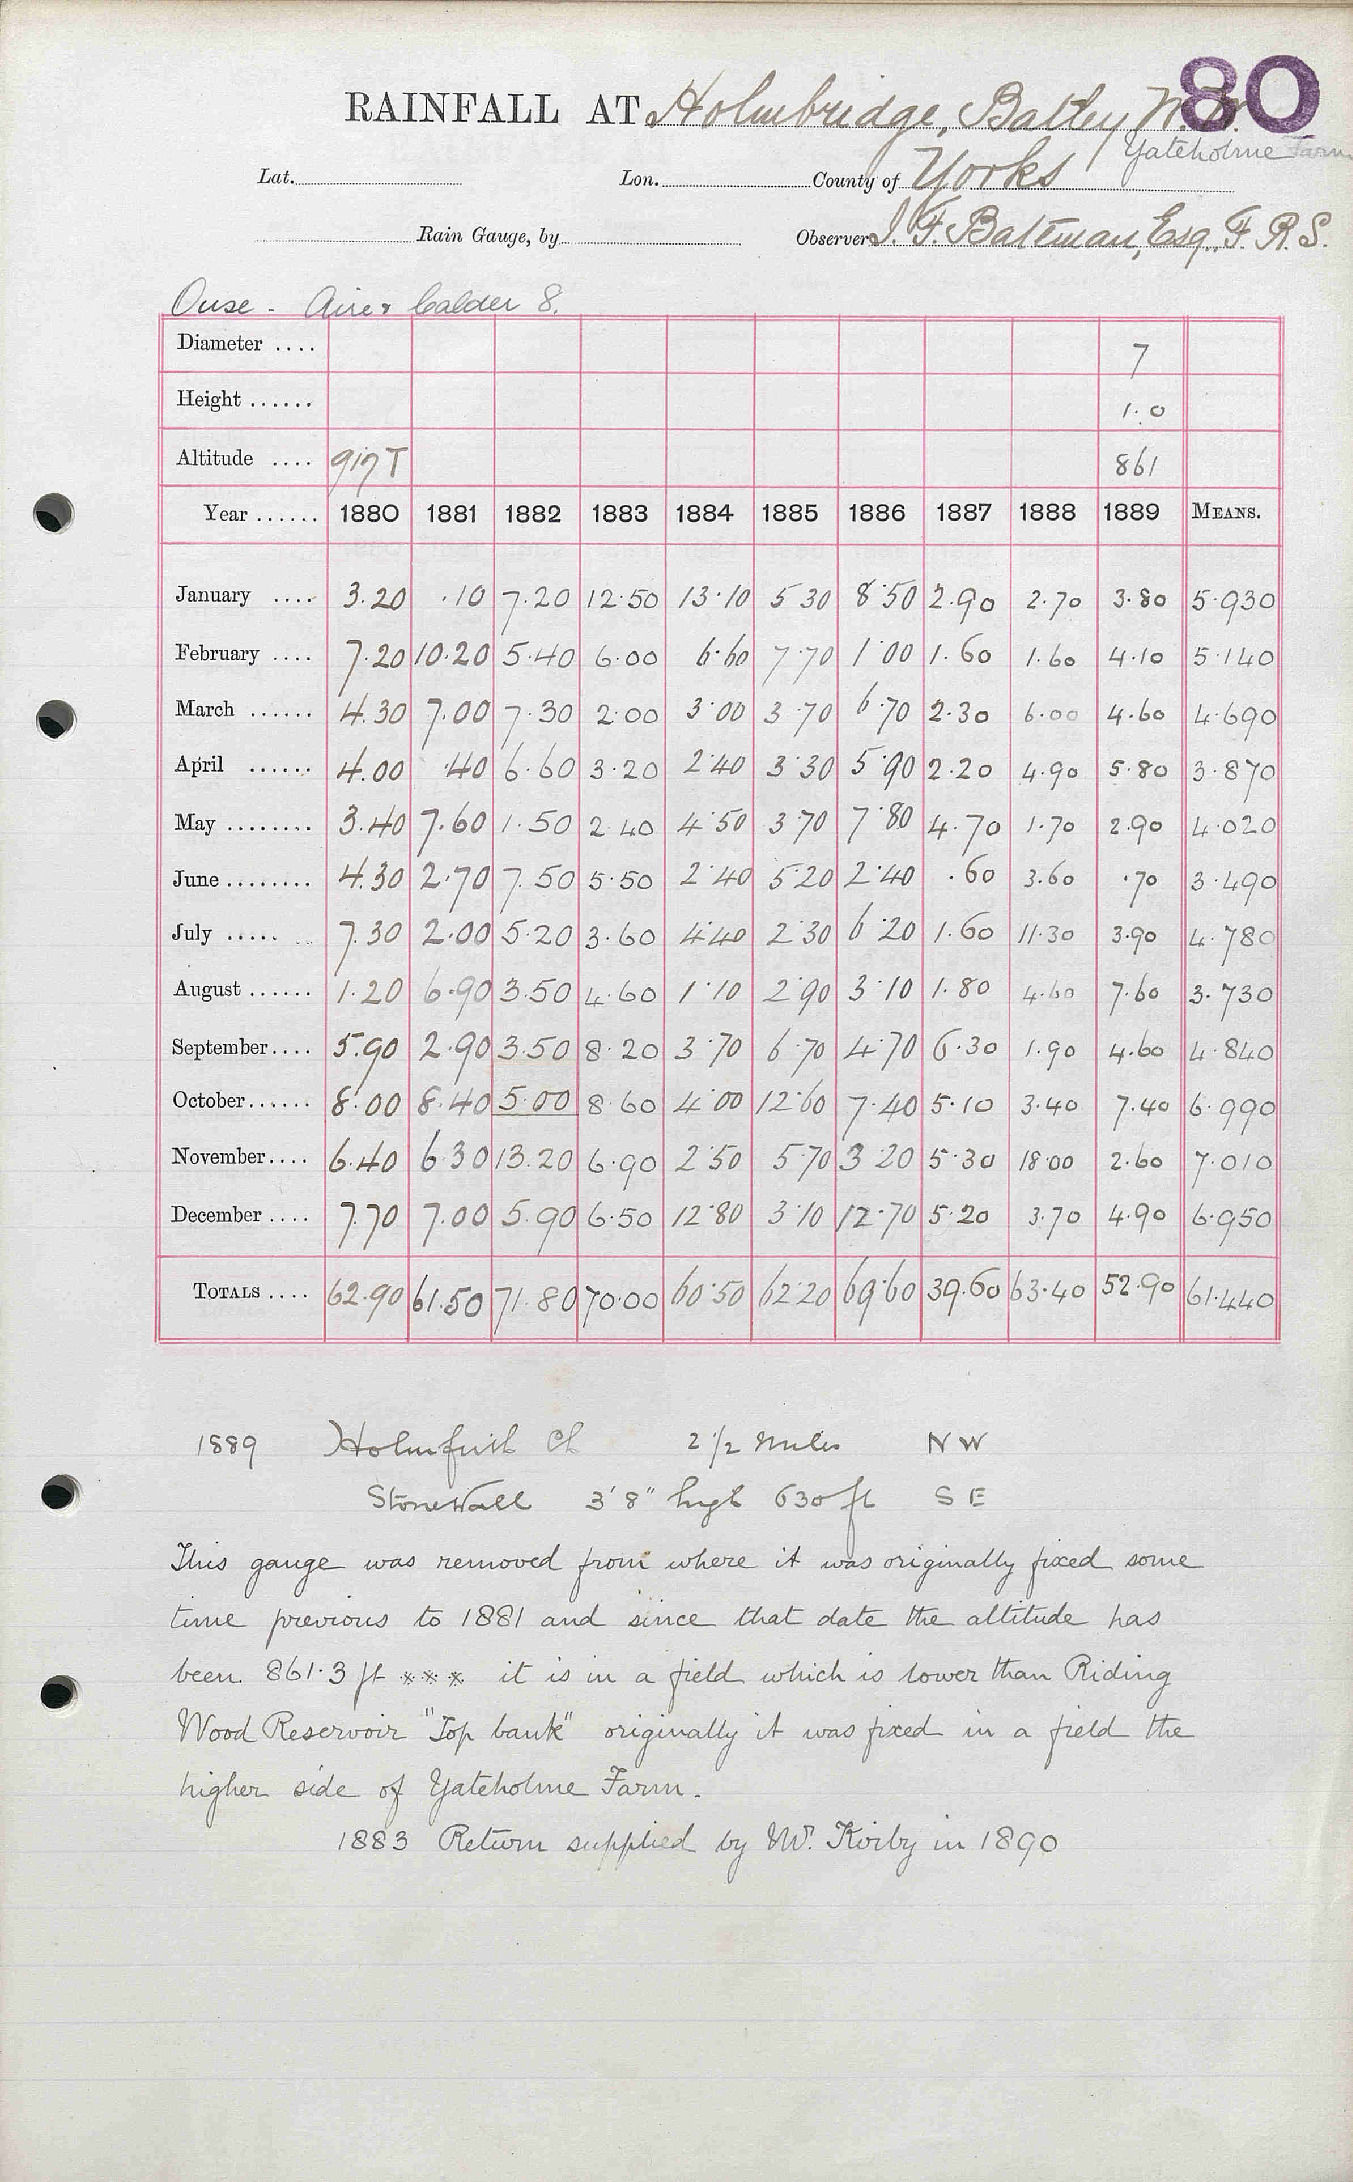 80
RAINFALL AT Holmbridge, Batley W.W.
Yateholme Farm
Lat. Lon. County of Yorks
Rain Gauge, by Observer J. F. Bateman, Esq., F.R.S.
Ouse - Aire & Calder 8.
Diameter .... 7
Height ...... 1.0
Altitude .... 917 T 861
Year ...... 1880 1881 1882 1883 1884 1885 1886 1887 1888 1889 MEANS.
January .... 3.20 .10 7.20 12.50 13.10 5.30 8.50 2.90 2.70 3.80 5.930
February .... 7.20 10.20 5.40 6.00 6.60 7.70 1.00 1.60 1.60 4.10 5.140
March ...... 4.30 7.00 7.30 2.00 3.00 3.70 6.70 2.30 6.00 4.60 4.690
April ...... 4.00 .40 6.60 3.20 2.40 3.30 5.90 2.20 4.90 5.80 3.870
May ........ 3.40 7.60 1.50 2.40 4.50 3.70 7.80 4.70 1.70 2.90 4.020
June ........ 4.30 2.70 7.50 5.50 2.40 5.20 2.40 .60 3.60 .70 3.490
July ..... .. 7.30 2.00 5.20 3.60 4.40 2.30 6.20 1.60 11.30 3.90 4.780
August ...... 1.20 6.90 3.50 4.60 1.10 2.90 3.10 1.80 4.60 7.60 3.730
September .... 5.90 2.90 3.50 8.20 3.70 6.70 4.70 6.30 1.90 4.60 4.840
October ...... 8.00 8.40 5.00 8.60 4.00 12.60 7.40 5.10 3.40 7.40 6.990
November .... 6.40 6.30 13.20 6.90 2.50 5.70 3.20 5.30 18.00 2.60 7.010
December .... 7.70 7.00 5.90 6.50 12.80 3.10 12.70 5.20 3.70 4.90 6.950
TOTALS .... 62.90 61.50 71.80 70.00 60.50 62.20 69.60 39.60 63.40 52.90 61.440
1889 Holmfirth Ch 2 1/2 miles NW
Stonewall 3' 8" high 630 ft SE
This gauge was removed from where it was originally fixed some
time previous to 1881 and since that date the altitude has
been 861.3 ft *** it is in a field which is lower than Riding
Wood Reservoir "Top bank" originally it was fixed in a field the
higher side of Yateholme Farm.
1883 Return supplied by Mr. Kirby in 1890